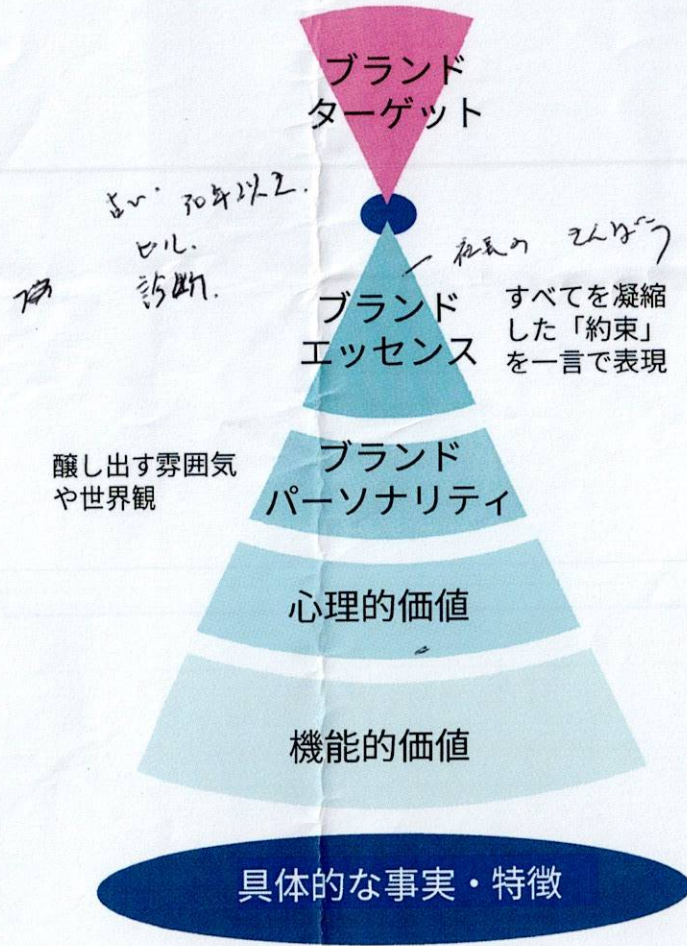 ブランド
ターゲット
古い. 30年以上.
ビル.
診断.
社長の
ブランド
エッセンス
すべてを凝縮
した「約束」
を一言で表現
醸し出す雰囲気
や世界観
ブランド
パーソナリティ
心理的価値
機能的価値
具体的な事実・特徴